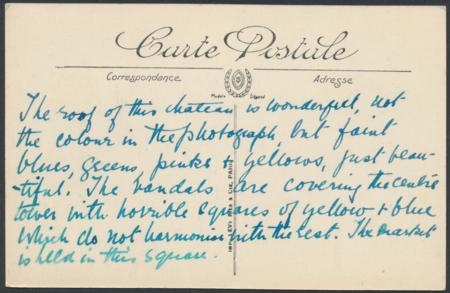 Carte Postale
Correspondance
Adresse
Modèle Déposé
The roof of this chateau is wonderful, not
the colour in the photograph, but faint
blues, greens, pinks & yellows, just beau-
-tiful. The vandals are covering the centre
tower with horrible squares of yellow & blue
which do not harmonise with the rest. The market
is held in this square.
IMP. LEVY FILS & CIE, PARIS